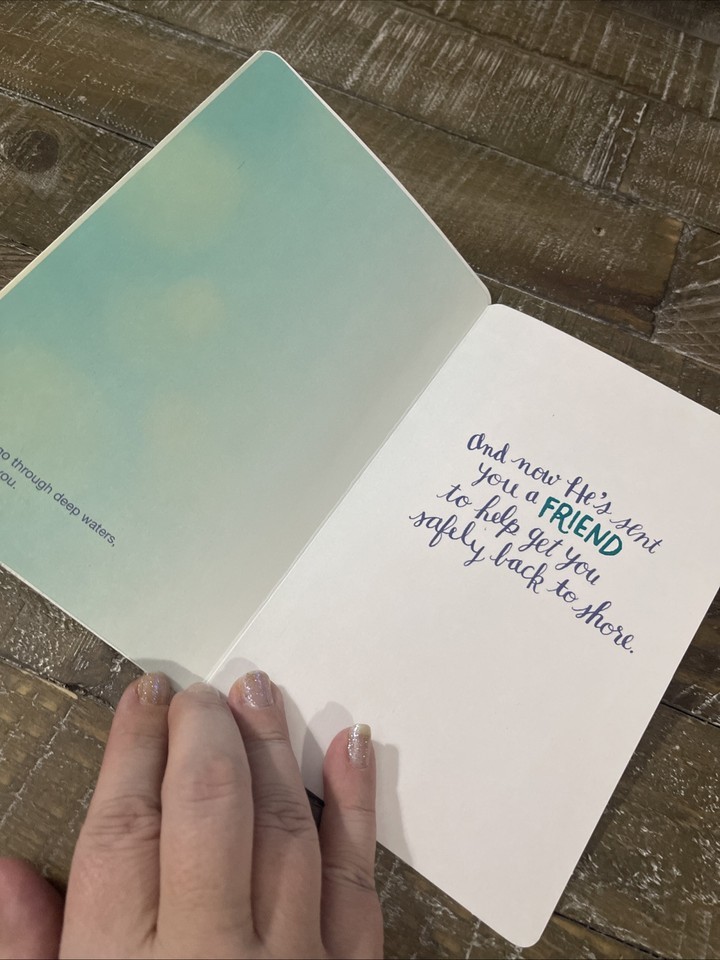 go through deep waters,
you.
And now He's sent
you a FRIEND
to help get you
safely back to shore.